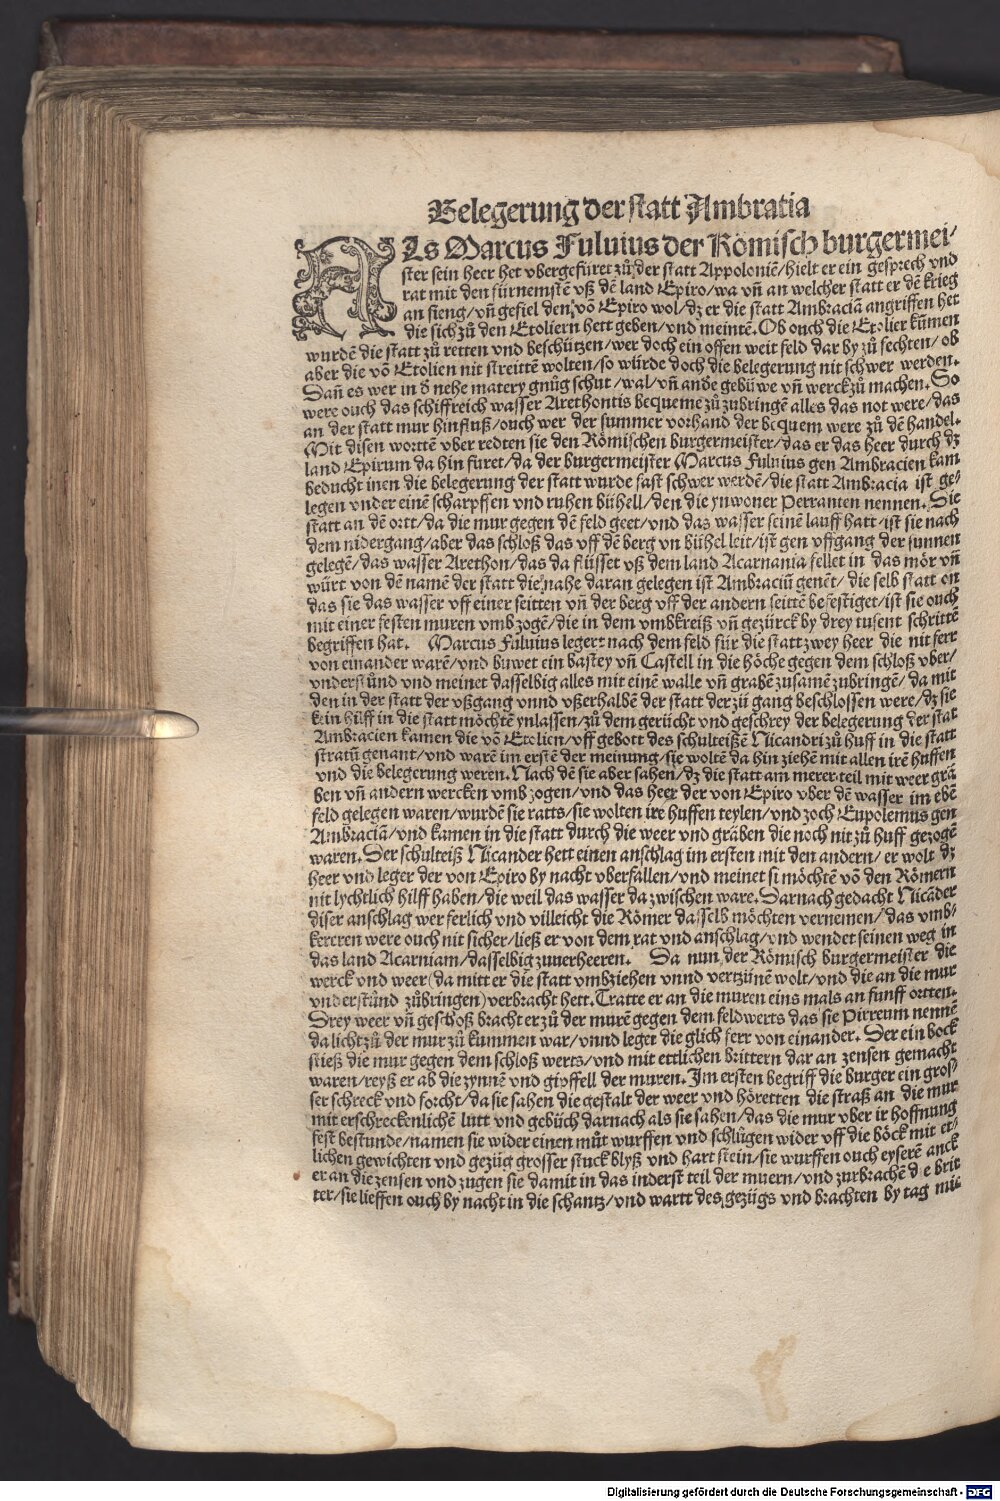 Belegerung der statt Ambratia
ALs Marcus Fuluius der Römisch burgermei/
ster sein heer het vbergefüret zů der statt Appoloniẽ/hielt er ein gesprech vnd
rat mit den fürnemstẽ vß dẽ land Epiro/wa vñ an welcher statt er dẽ krieg
an fieng/vñ gefiel den võ Epiro wol/dz er die statt Ambraciã angriffen het
die sich zů den Etoliern hett geben/vnd meintẽ. Ob ouch die Etolier kũmen
wurdẽ die statt zů retten vnd beschützen/wer doch ein offen weit feld dar by zů fechten/ob
aber die võ Etolien nit streittẽ wolten/so würde doch die belegerung nit schwer werden.
Dañ es wer in d nehe matery gnůg schut/wal/vñ ande gebüwe vñ werck zů machen. So
were ouch das schiffreich wasser Arethontis bequeme zů zubringẽ alles das not were/das
an der statt mur hinfluß/ouch wer der summer vorhand der bequem were zů dẽ handel.
Mit disen worttẽ vber redten sie den Römischen burgermeister/das er das heer durch dz
land Epirum da hin füret/da der burgermeister Marcus Fuluius gen Ambracien kam
beducht inen die belegerung der statt wurde fast schwer werdẽ/die statt Ambracia ist ge/
legen vnder einẽ scharpffen vnd ruhen bühell/den die ynwoner Perranten nennen. Die
statt an dẽ ortt/da die mur gegen dẽ feld geet/vnd das wasser seinẽ lauff hatt/ist sie nach
dem nidergang/aber das schloß das vff dẽ berg vn bühel leit/ist gen vffgang der sunnen
gelegẽ/das wasser Arethon/das da flüsset vß dem land Acarnania fellet in das mör vñ
würt von dẽ namẽ der statt die nahe daran gelegen ist Ambraciũ genẽt/die selb statt on
das sie das wasser vff einer seitten vñ der berg vff der andern seittẽ befestiget/ist sie ouch
mit einer festen muren vmb zogẽ/die in dem vmbkreiß vñ gezürck by drey tusent schrittẽ
begriffen hat. Marcus Fuluius legert nach dem feld für die statt zwey heer die nit ferr
von einander warẽ/vnd buwet ein bastey vñ Castell in die höche gegen dem schloß vber/
vnderstůnd vnd meinet dasselbig alles mit einẽ walle vñ grabẽ zusamẽ zubringẽ/da mit
den in der statt der vßgang vnnd vßerhalbẽ der statt der zů gang beschlossen were/dz sie
kein hüff in die statt möchtẽ ynlassen/zů dem gerücht vnd geschrey der belegerung der stat
Ambracien kamen die võ Etolien/vff gebott des schulteißẽ Nicandri zů huff in die statt
stratũ genant/vnd warẽ im erstẽ der meinung/sie woltẽ da hin ziehẽ mit allen irẽ huffen
vnd die belegerung weren. Nach dẽ sie aber sahen/dz die statt am merer teil mit weer grã
ben vñ andern wercken vmb zogen/vnd das heer der von Epiro vber dẽ wasser im ebẽ
feld gelegen waren/wurdẽ sie ratts/sie wolten ire huffen teylen/vnd zoch Eupolemus gen
Ambraciã/vnd kamen in die statt durch die weer vnd gräben die noch nit zů huff gezogẽ
waren. Der schulteiß Nicander hett einen anschlag im ersten mit den andern/er wolt dz
heer vnd leger der von Epiro by nacht vberfallen/vnd meinet si möchtẽ võ den Römern
nit lychtlich hilff haben/die weil das wasser da zwischen ware. Darnach gedacht Nicãder
diser anschlag wer ferlich vnd villeicht die Römer dasselb möchten vernemen/das vmb/
kereren were ouch nit sicher/ließ er von dem rat vnd anschlag/vnd wendet seinen weg in
das land Acarniam/dasselbig zuuerheeren. Da nun der Römisch burgermeister die
werck vnd weer(da mitt er die statt vmbziehen vnnd vertzünẽ wolt/vnd die an die mur
vnderstůnd zůbringen)verbracht hett. Tratte er an die muren eins mals an funff ortten.
Drey weer vñ geschoß bracht er zů der murẽ gegen dem feldwerts das sie Pirreum nennẽ
da licht zů der mur zů kummen war/vnnd leget die glich ferr von einander. Der ein bock
stieß die mur gegen dem schloß werts/vnd mit ettlichen brittern dar an zensen gemacht
waren/reyß er ab die zynnẽ vnd gipffell der muren. Im ersten begriff die burger ein gros/
ser schreck vnd forcht/da sie sahen die gestalt der weer vnd höretten die straß an die mur
mit erschreckenlichẽ lutt vnd gebüch darnach als sie sahen/das die mur vber ir hoffnung
fest bestunde/namen sie wider einen můt wurffen vnd schlůgen wider vff die böck mit et/
lichen gewichten vnd gezüg grosser stuck blyß vnd hart stein/sie wurffen ouch eyserẽ anck
er an die zensen vnd zugen sie damit in das inderst teil der muern/vnd zurbrachẽ d e brit
ter/sie lieffen ouch by nacht in die schantz/vnd wartt des gezügs vnd brachten by tag mit
Digitalisierung gefördert durch die Deutsche Forschungsgemeinschaft - DFG